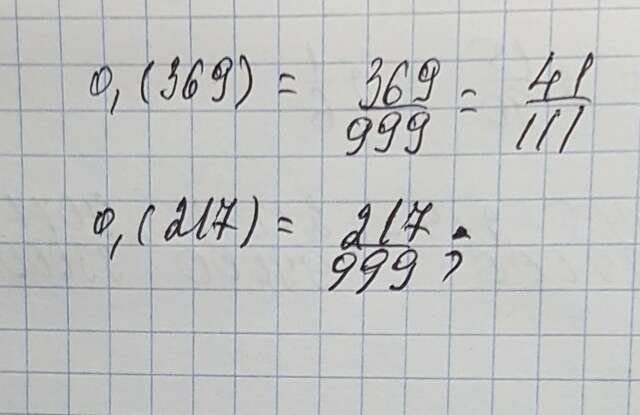 0,(369) = 369/999 = 41/111
0,(217) = 217/999;